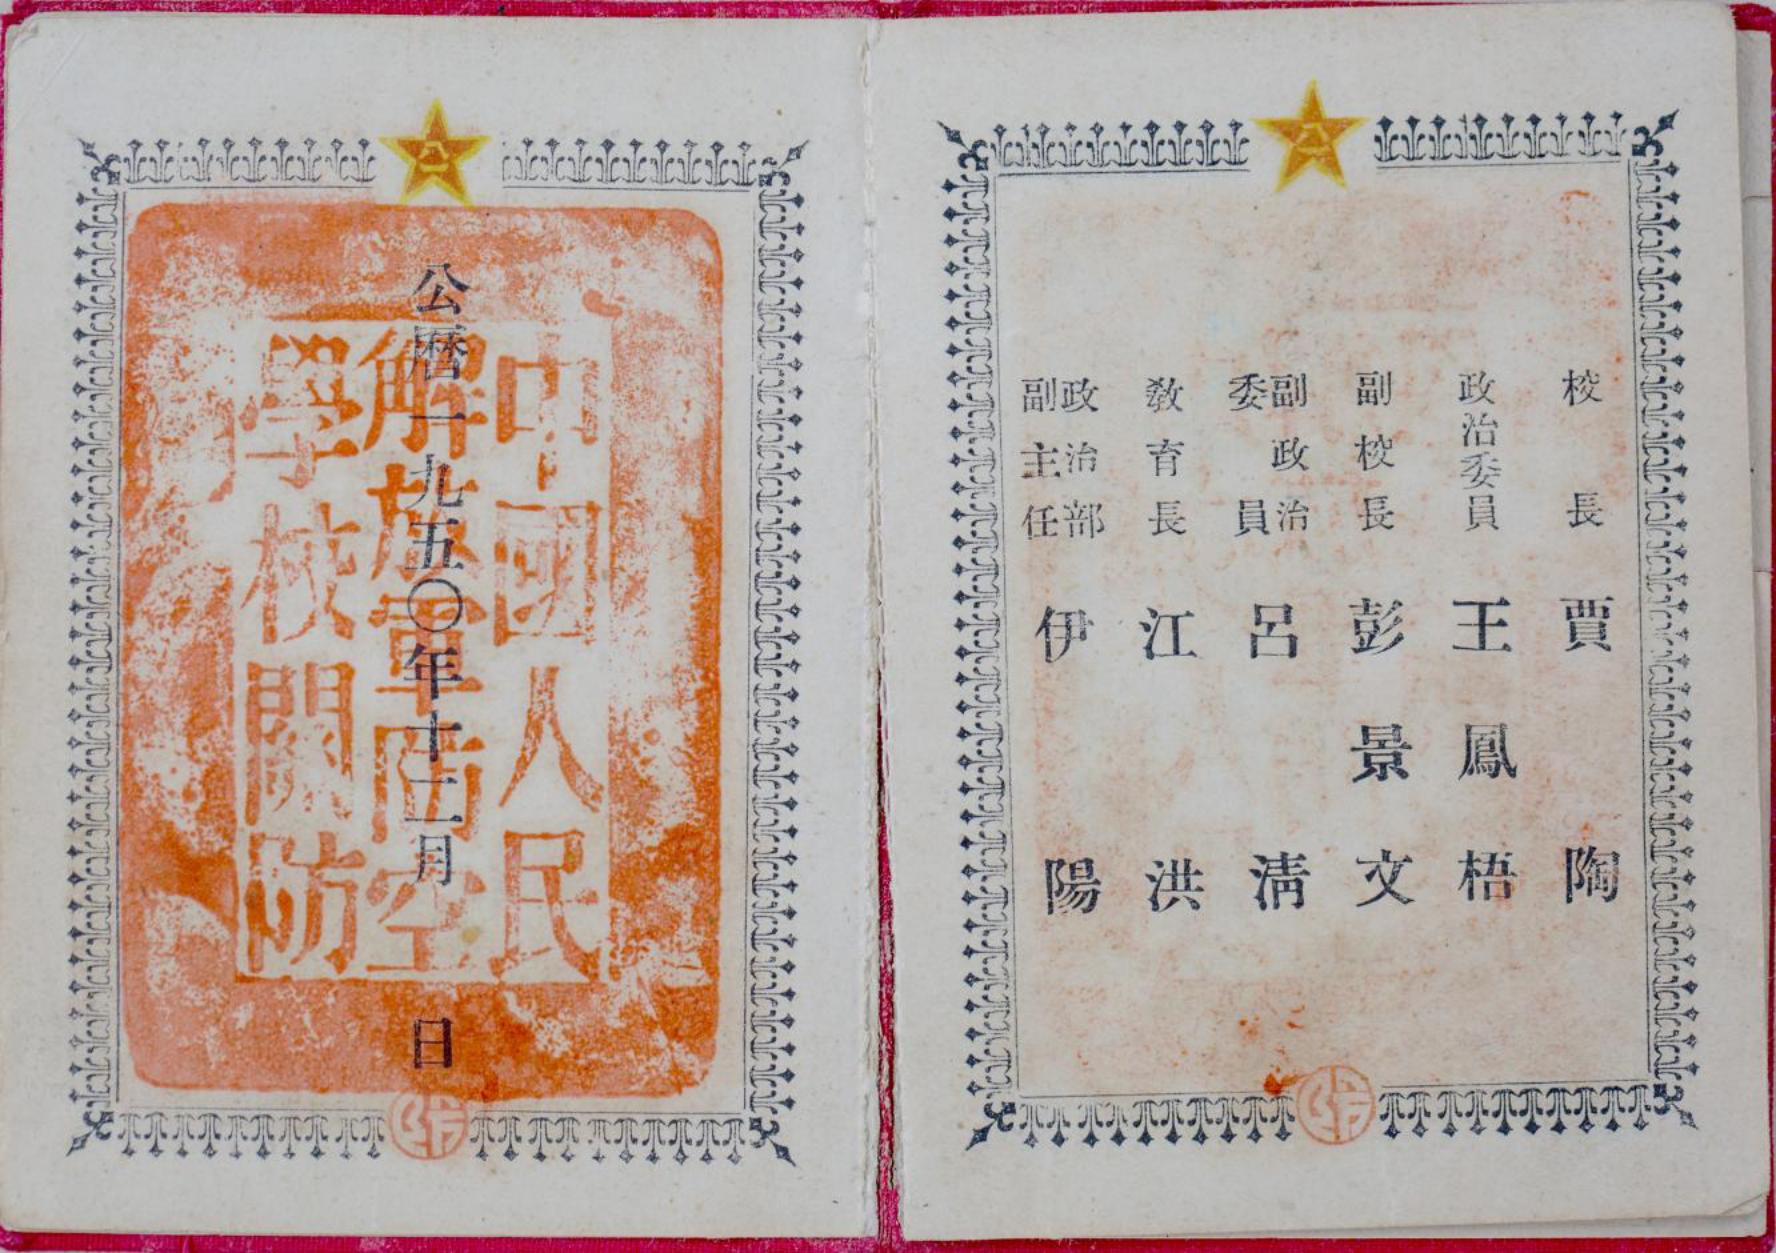 校長 賈陶
政治委員 王鳳梧
副校長 彭景文
副政治委員 呂清
教育長 江洪
政治部副主任 伊陽
公曆一九五〇年十二月 日
中國人民
解放軍防空
學校關防